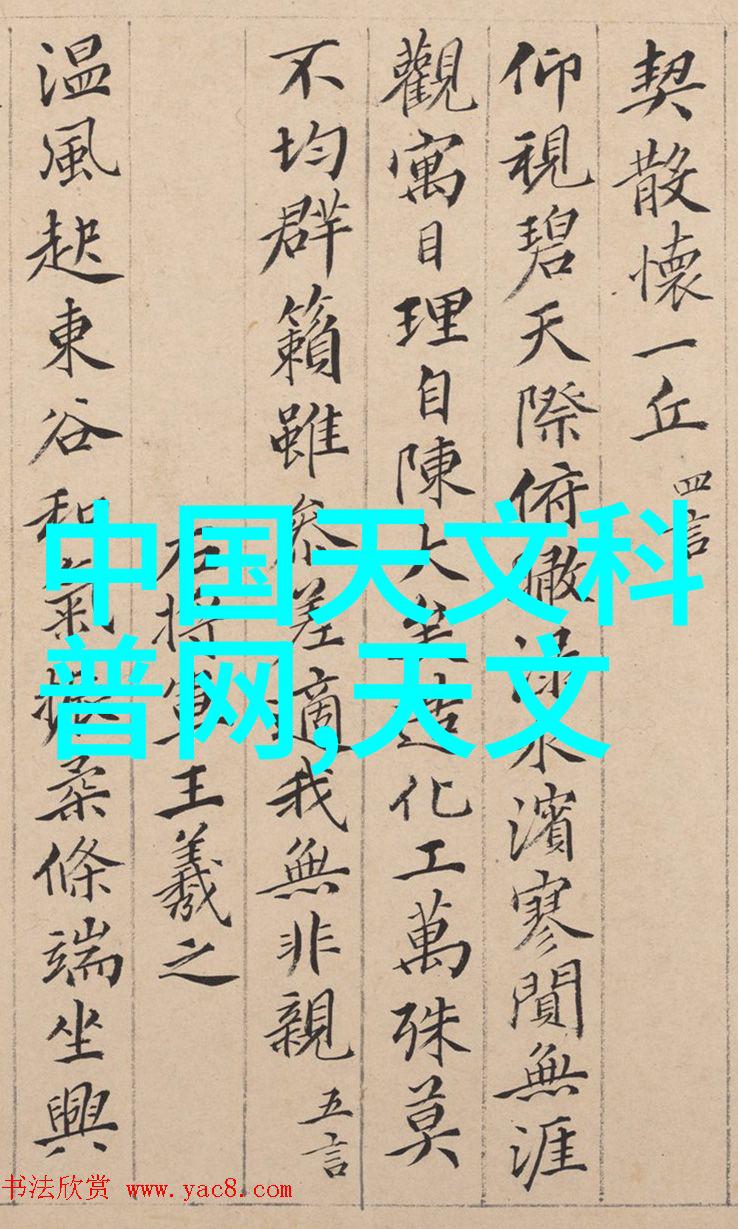 契散懷一丘 四言
仰視碧天際俯瞰淥水濱寥閴無涯
觀寓目理自陳大矣造化工萬殊莫
不均群籟雖參差適我無非親 五言
右將軍王羲之
溫風起東谷和氣振柔條端坐興
中国天文科
普网,天文
书法欣赏 www.yac8.com